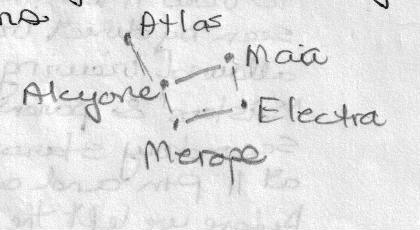 ns
Atlas
Maia
Alcyone
Electra
Merope